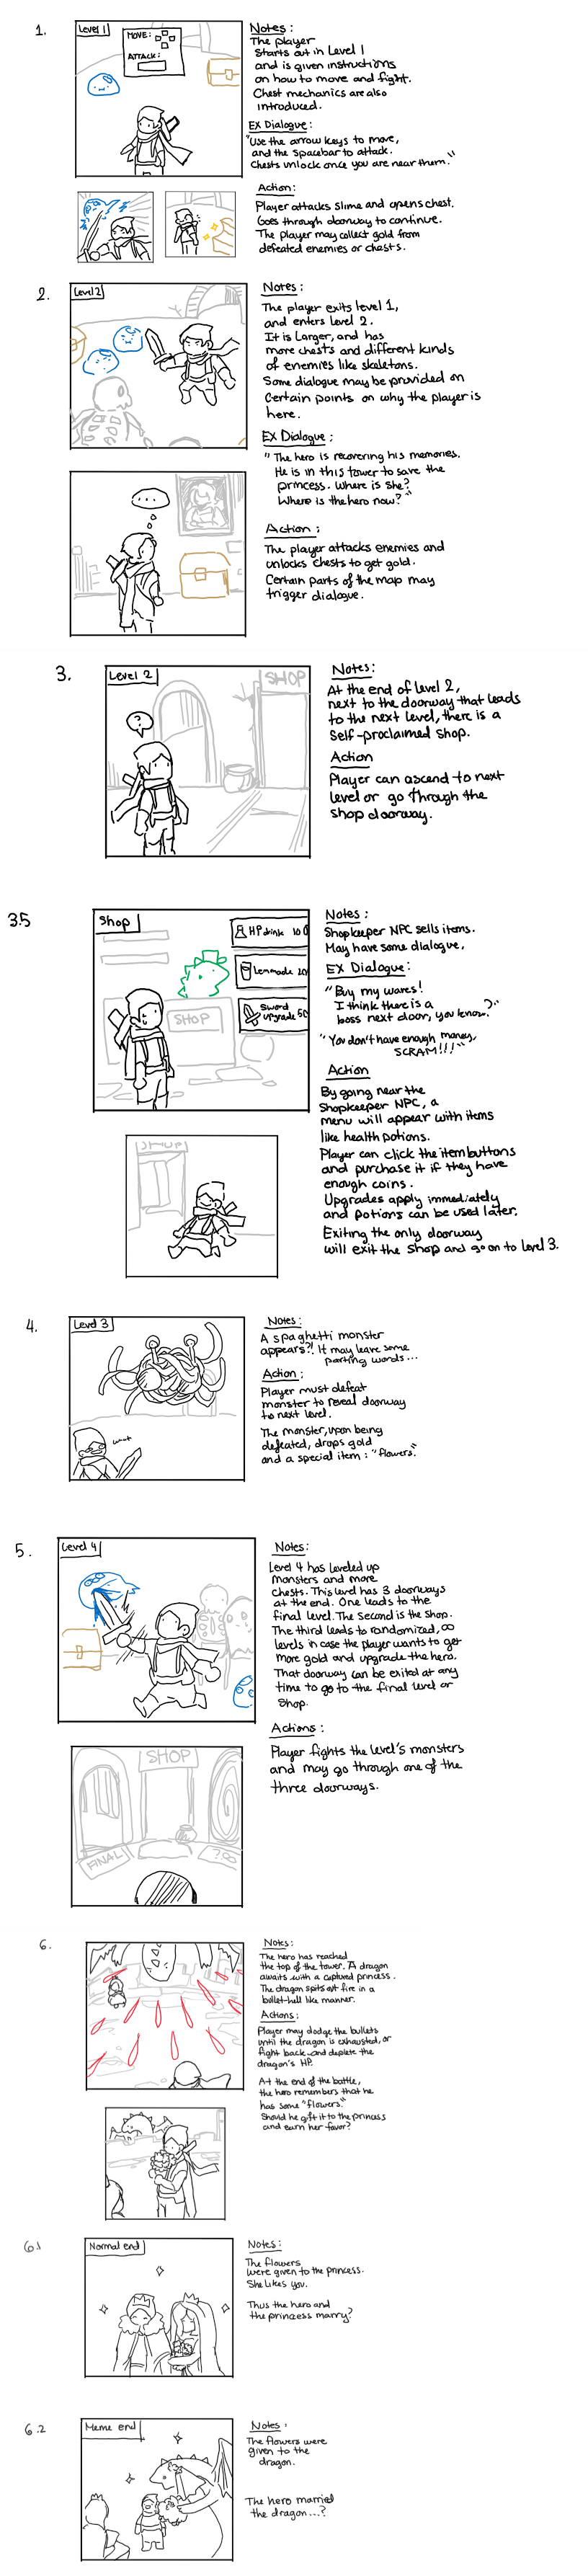 1.
Level 1
MOVE:
ATTACK:
Notes:
The player
Starts out in Level 1
and is given instructions
on how to move and fight.
Chest mechanics are also
introduced.
EX Dialogue:
"Use the arrow keys to move,
and the spacebar to attack.
Chests unlock once you are near them."
Action:
Player attacks slime and opens chest.
Goes through doorway to continue.
The player may collect gold from
defeated enemies or chests.
2.
Level 2
Notes:
The player exits level 1,
and enters Level 2.
It is Larger, and has
more chests and different kinds
of enemies like skeletons.
Some dialogue may be provided on
certain points on why the player is
here.
EX Dialogue:
"The hero is recovering his memories.
He is in this tower to save the
princess. Where is she?
Where is the hero now?"
...
Action:
The player attacks enemies and
unlocks chests to get gold.
Certain parts of the map may
trigger dialogue.
3.
Level 2
SHOP
?
Notes:
At the end of Level 2,
next to the doorway that leads
to the next level, there is a
self-proclaimed shop.
Action
Player can ascend to next
level or go through the
shop doorway.
3.5
Shop
HP drink 100
Lemonade 20
Sword
upgrade 50
SHOP
Notes:
Shopkeeper NPC sells items.
May have some dialogue.
EX Dialogue:
"Buy my wares!
I think there is a
boss next door, you know?"
"You don't have enough money,
SCRAM!!!"
Action
By going near the
Shopkeeper NPC, a
menu will appear with items
like health potions.
Player can click the item buttons
and purchase it if they have
enough coins.
Upgrades apply immediately
and potions can be used later.
Exiting the only doorway
will exit the shop and go on to Level 3.
SHOP
4.
Level 3
what
Notes:
A spaghetti monster
appears?! It may leave some
parting words...
Action:
Player must defeat
monster to reveal doorway
to next level.
The monster, upon being
defeated, drops gold
and a special item: "flowers".
5.
Level 4
Notes:
Level 4 has leveled up
monsters and more
chests. This level has 3 doorways
at the end. One leads to the
final level. The second is the shop.
The third leads to randomized, ∞
levels in case the player wants to get
more gold and upgrade the hero.
That doorway can be exited at any
time to go to the final level or
shop.
Actions:
Player fights the level's monsters
and may go through one of the
three doorways.
SHOP
FINAL
?∞
6.
Notes:
The hero has reached
the top of the tower. A dragon
awaits with a captured princess.
The dragon spits out fire in a
bullet-hell like manner.
Actions:
Player may dodge the bullets
until the dragon is exhausted, or
fight back and deplete the
dragon's HP.
At the end of the battle,
the hero remembers that he
has some "flowers."
Should he gift it to the princess
and earn her favor?
6.1
Normal end
Notes:
The flowers
were given to the princess.
She likes you.
Thus the hero and
the princess marry?
6.2
Meme end
Notes:
The flowers were
given to the
dragon.
The hero married
the dragon...?